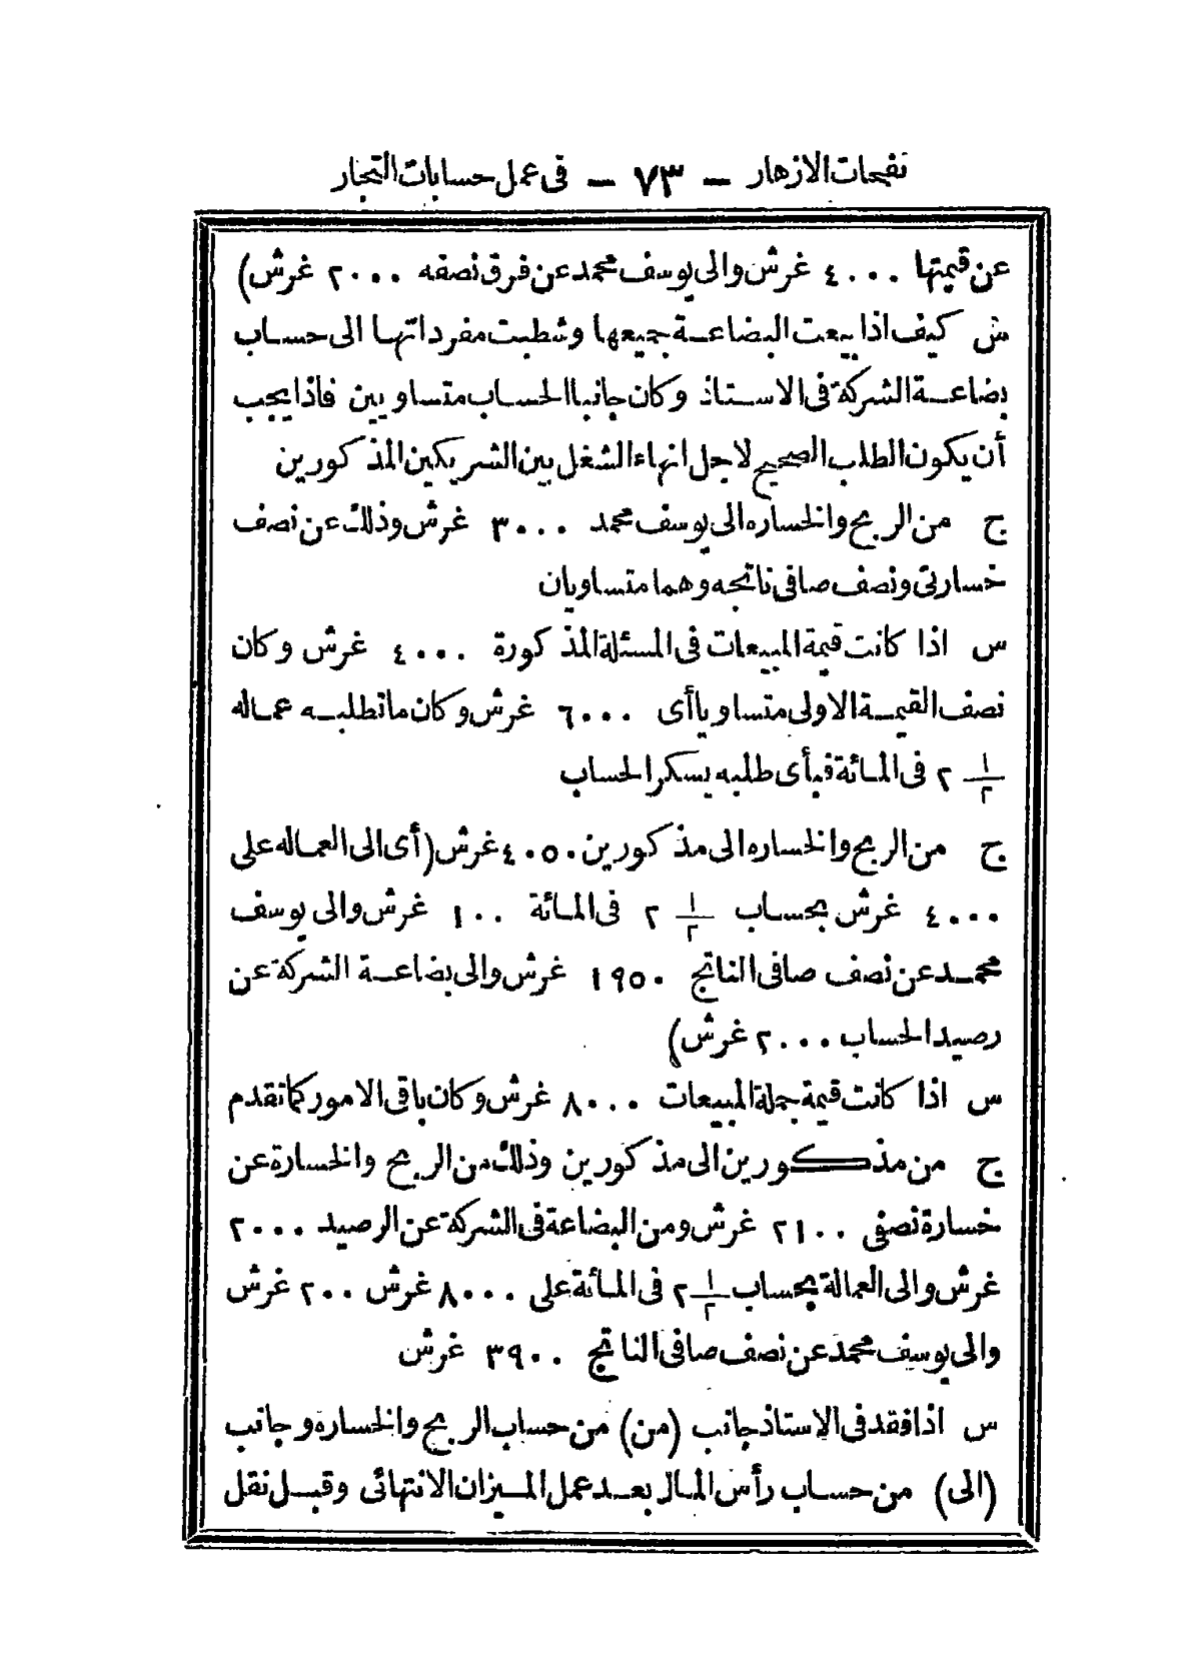 نفحات الازهار – ٧٣ – فى عمل حسابات التجار
عن قيمتها ٤٠٠٠ غرش والى يوسف محمد عن فرق نصفه ٢٠٠٠ غرش)
س كيف اذا بيعت البضاعة جميعها وشطبت مفرداتها الى حساب
بضاعة الشركة فى الاستاذ وكان جانبا الحساب متساويين فاذا يجب
أن يكون الطلب الصحيح لاجل انهاء الشغل بين الشريكين المذكورين
ج من الربح والخساره الى يوسف محمد ٣٠٠٠ غرش وذلك عن نصف
خسارتى ونصف صافى ناتجه وهما متساويان
س اذا كانت قيمة المبيعات فى المسئلة المذكورة ٤٠٠٠ غرش وكان
نصف القيمة الاولى متساويا أى ٦٠٠٠ غرش وكان ما تطلبه عماله
١/٢ ٢ فى المائة فبأى طلبه يسكر الحساب
ج من الربح والخساره الى مذكورين ٤٠٥٠ غرش (أى الى العماله على
٤٠٠٠ غرش بحساب ١/٢ ٢ فى المائة ١٠٠ غرش والى يوسف
محمد عن نصف صافى الناتج ١٩٥٠ غرش والى بضاعة الشركة عن
رصيد الحساب ٢٠٠٠ غرش)
س اذا كانت قيمة جملة المبيعات ٨٠٠٠ غرش وكان باقى الامور كما تقدم
ج من مذكورين الى مذكورين وذلك من الربح والخسارة عن
خسارة نصفى ٢١٠٠ غرش ومن البضاعة فى الشركة عن الرصيد ٢٠٠٠
غرش والى العمالة بحساب ١/٢ ٢ فى المائة على ٨٠٠٠ غرش ٢٠٠ غرش
والى يوسف محمد عن نصف صافى الناتج ٣٩٠٠ غرش
س اذا فقد فى الاستاذ جانب (من) من حساب الربح والخساره وجانب
(الى) من حساب رأس المال بعد عمل الميزان الانتهائى وقبل نقل